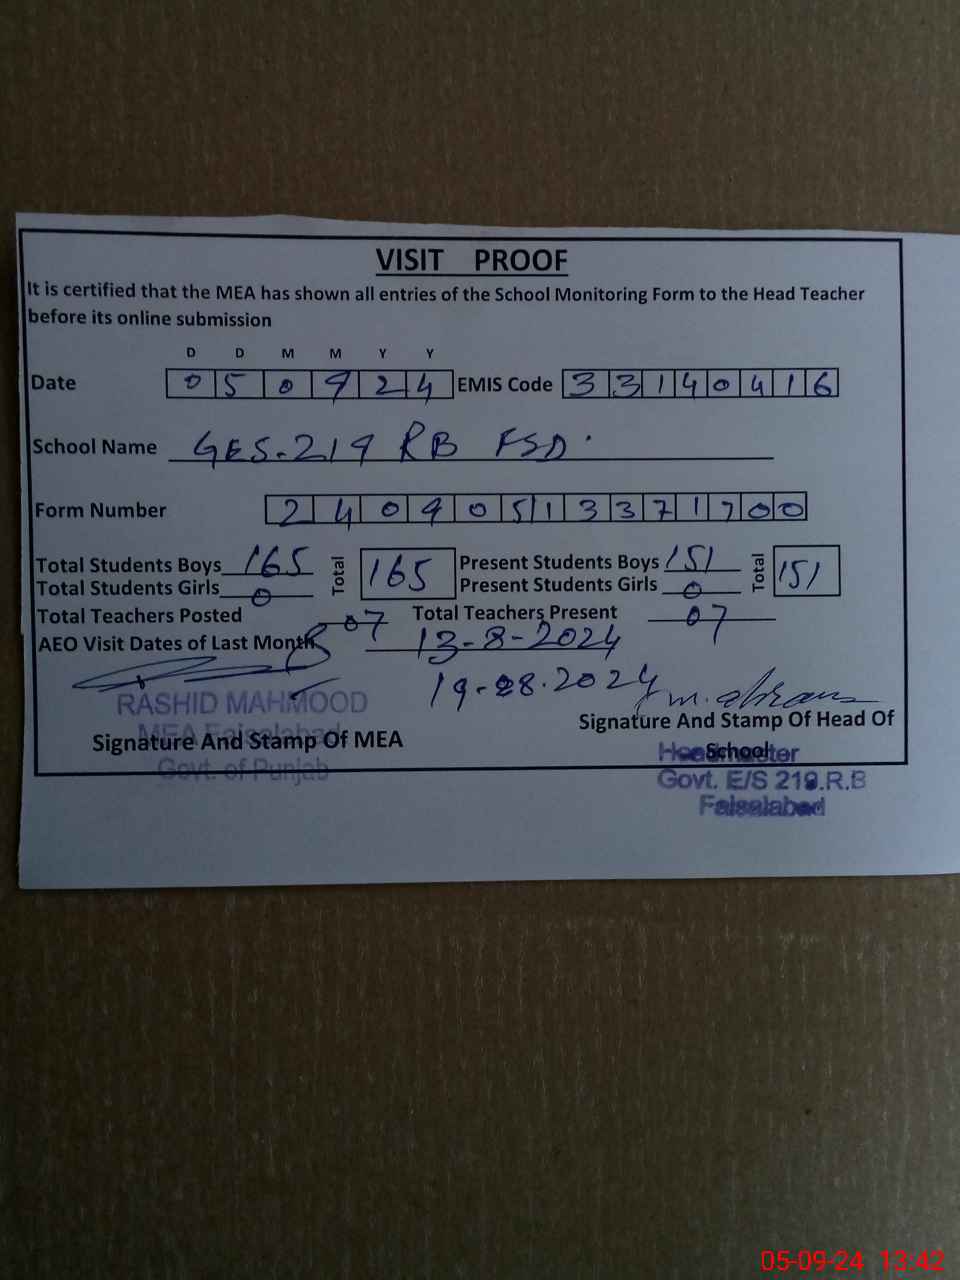 VISIT PROOF
It is certified that the MEA has shown all entries of the School Monitoring Form to the Head Teacher
before its online submission
D D M M Y Y
Date 0 5 0 9 2 4 EMIS Code 3 3 1 4 0 4 1 6
School Name GES-219 RB FSD.
Form Number 2 4 0 9 0 5 1 3 3 7 1 7 0 0
Total Students Boys 165 Total 165 Present Students Boys 151 Total 151
Total Students Girls 0 Present Students Girls 0
Total Teachers Posted 07 Total Teachers Present 07
AEO Visit Dates of Last Month 13-8-2024
19-08-2024
RASHID MAHMOOD
MEA Faisalabad
Signature And Stamp Of MEA
Govt. of Punjab
Signature And Stamp Of Head Of
School
Headmaster
Govt. E/S 219.R.B
Faisalabad
05-09-24 13:42